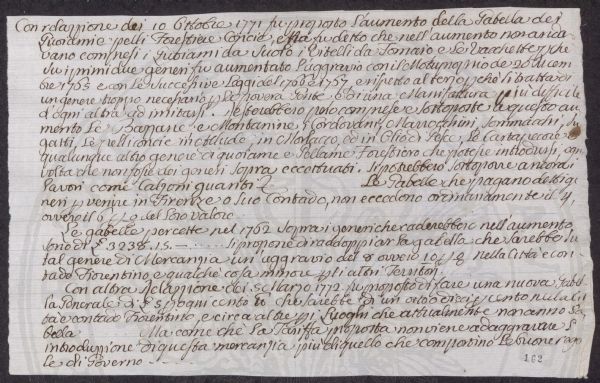 Con relazione dei 10 Ottobre 1771 fu proposto l'aumento della Gabella dei
Quoiami e pelli Forestiere Concie, e fu detto che nell'aumento non anda
vano compresi i Quoiami da Suolo i Vitelli da Tomaio e le Vacchette perche
su i primi due generi fu aumentato l'aggravio con il Motuproprio de 20 Dicem
bre 1753 e con le successive Leggi del 1756 e 1757 e rispetto al terzo perchè si tratta di
un genere troppo necessario per la povera Gente e di una Manifattura più difficile
d'ogni altra ad imitarsi. Resterebbero poi comprese e sottoposte a questo au
mento le Bazzane e Montanine, i Cordovani, Marrocchini, Sommacchi, Su
gatti, le pelli concie in in Morlacco, ed in Olio di Pesce, le Cartapecore e
qualunque altro genere di quoiame e Pellame Forestiero che potesse introdursi, ogni
volta che non fosse dei generi sopra eccettuati. Si potrebbero sottoporre ancora i
Lavori come Calzoni guanti &c. Le Gabelle che pagano detti ge
neri per venire in Firenze o suo Contado, non eccedono ordinariamente il 4,
ovvero il 6 per % del loro valore
Le gabelle percette nel 1762 sopra i generi che caderebbero nell'aumento
sono di £ 3238.15.— Si propone di raddoppiar la gabella che sarebbe su
tal genere di Mercanzia un'aggravio del 8 ovvero 10 per % nella Città e con
tado Fiorentino e qualche cosa minore per li altri Territori.
Con altra Relazione dei 5 Marzo 1772 fu proposto di fare una nuova Gabel
la Generale di £ 5 per ogni cento &c. che sarebbe di un otto circa per cento nella Cit
tà e contado Fiorentino, e circa altre per i Luoghi che attualmente non anno Ga
bella. Ma come che la Tariffa proposta non viene ad aggravare l'
introduzione di questa mercanzia più di quello che comportino le buone rego
le di Governo
162